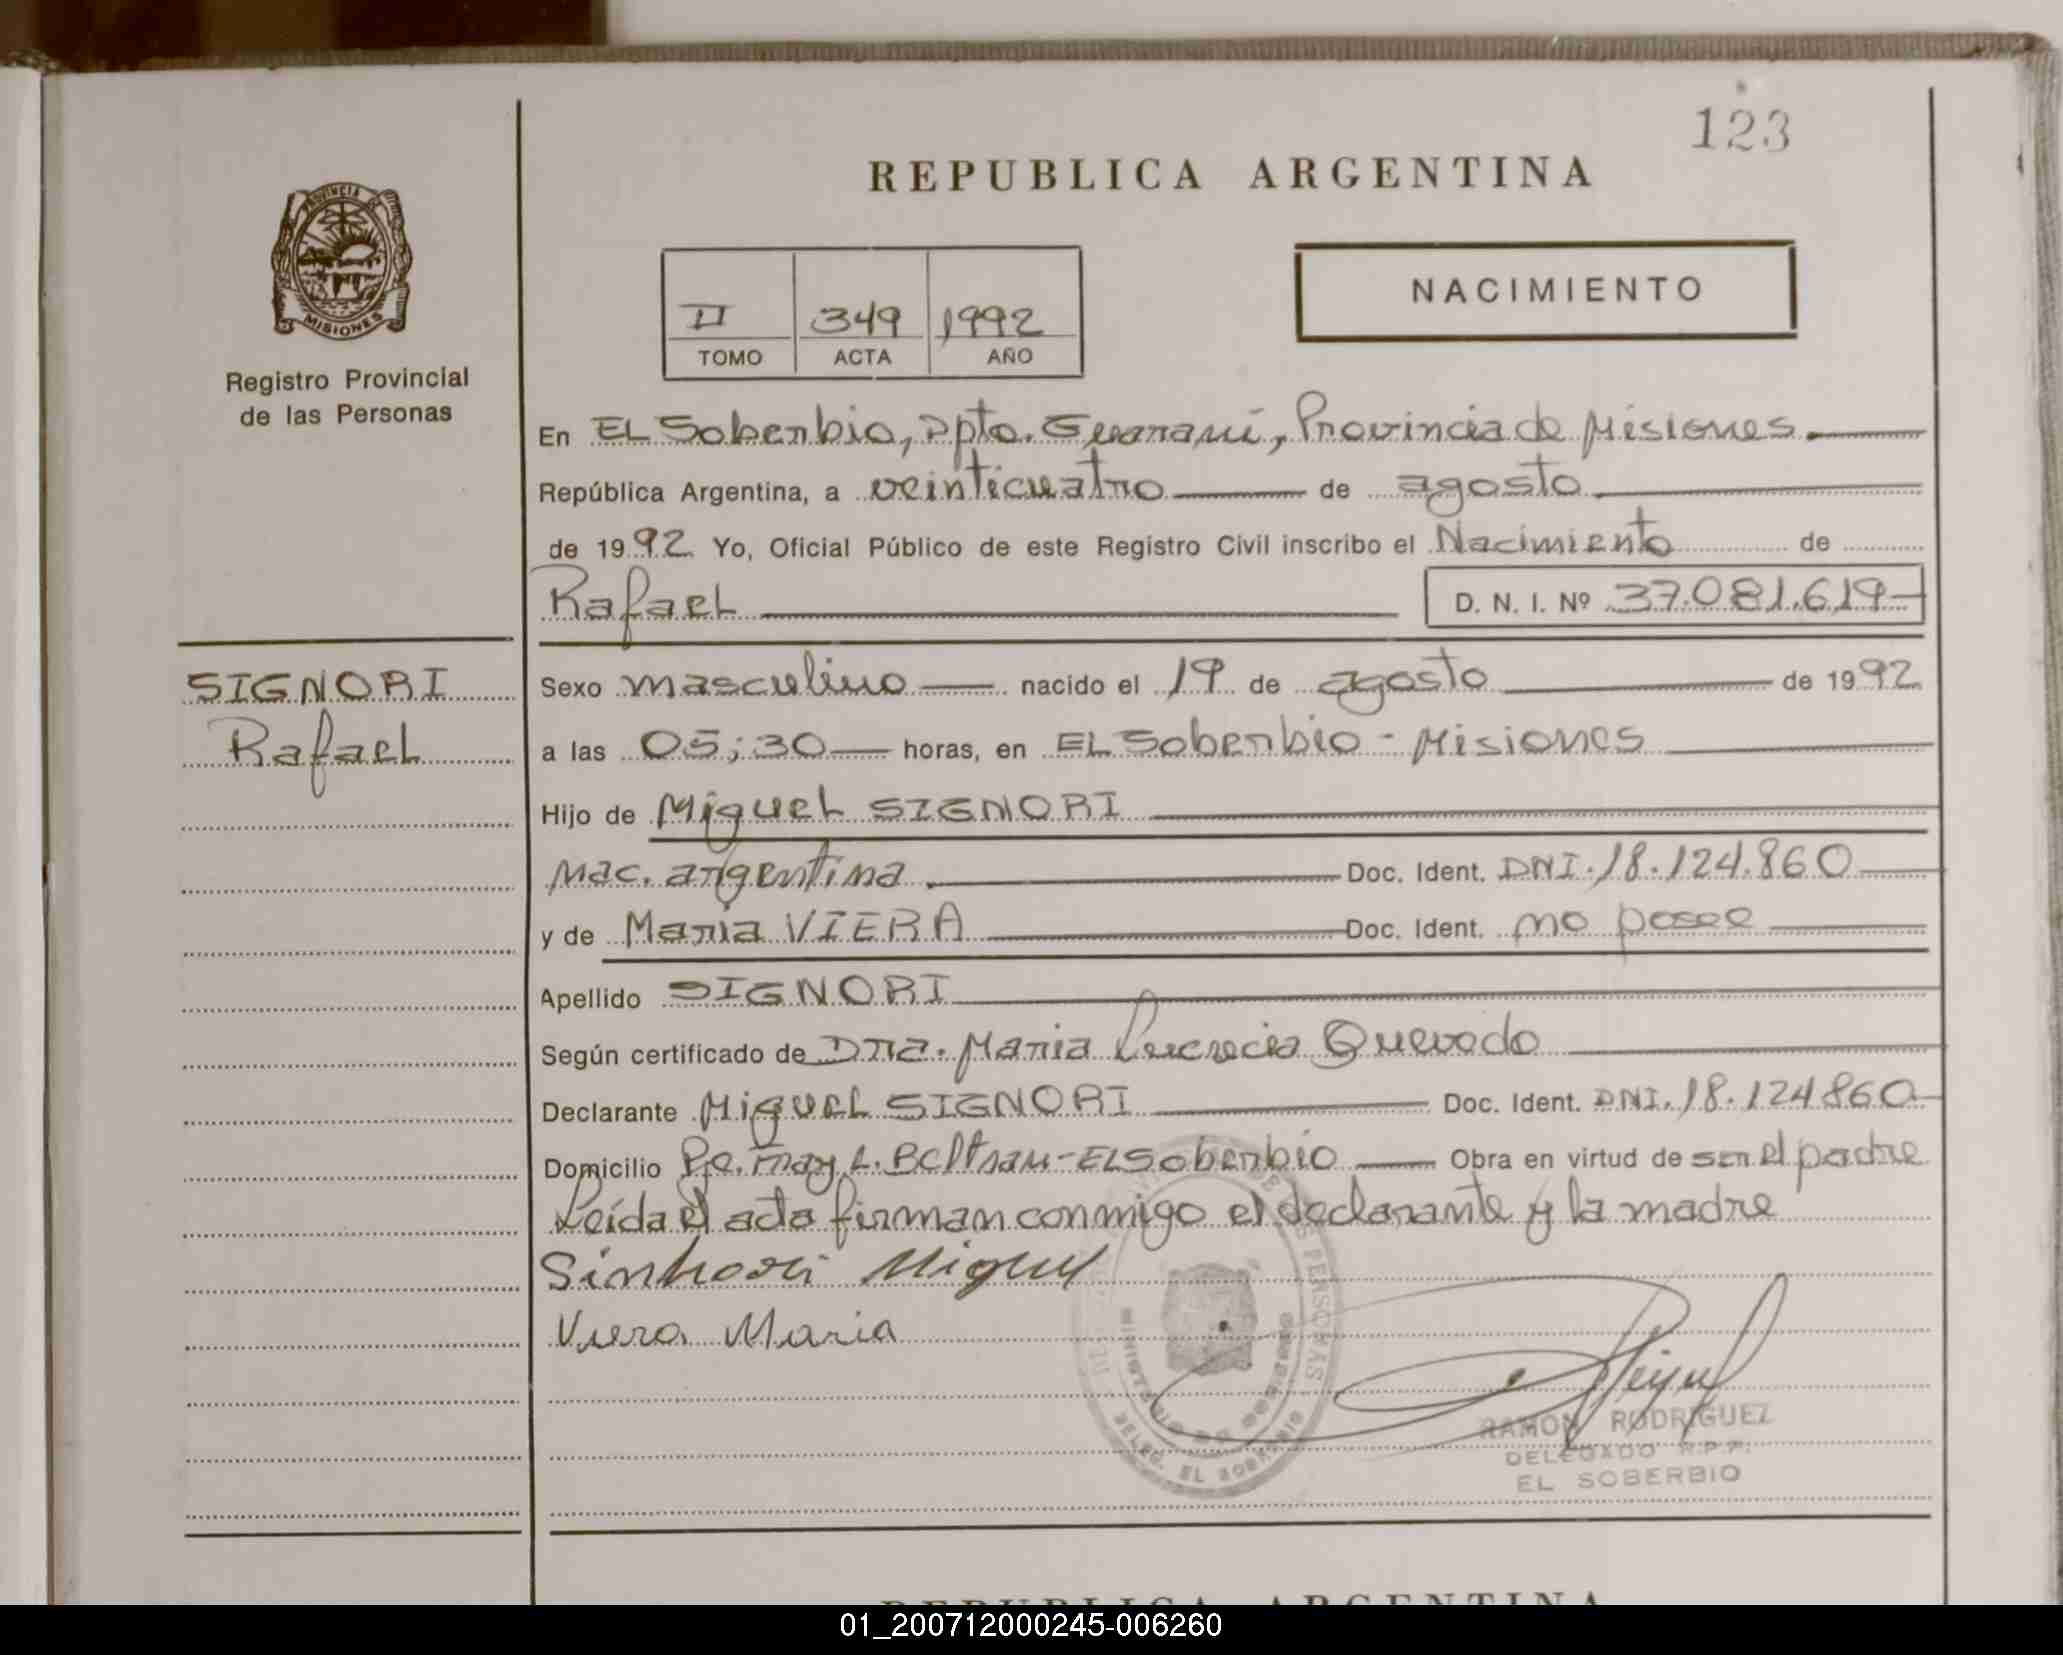 123
REPUBLICA ARGENTINA
PROVINCIA DE
MISIONES
Registro Provincial
de las Personas
NACIMIENTO
II 349 1992
TOMO ACTA AÑO
En EL Soberbio, Dpto. Guaraní, Provincia de Misiones.
República Argentina, a veinticuatro de agosto
de 1992 Yo, Oficial Público de este Registro Civil inscribo el Nacimiento de
Rafael D. N. I. Nº 37.081.619
SIGNORI
Rafael
Sexo masculino nacido el 19 de agosto de 1992
a las 05;30 horas, en EL Soberbio - Misiones
Hijo de Miguel SIGNORI
Nac. argentina. Doc. Ident. DNI. 18.124.860
y de María VIERA Doc. Ident. no posee
Apellido SIGNORI
Según certificado de Dra. Maria Lucrecia Quevedo
Declarante Miguel SIGNORI Doc. Ident. DNI. 18.124860
Domicilio Pje. Fray L. Beltran-EL Soberbio Obra en virtud de ser el padre
Leída el acta firman conmigo el declarante y la madre
Sinhori Miguel
Viera Maria
RAMON RODRIGUEZ
DELEGADO R.P.P.
EL SOBERBIO
DE LAS PERSONAS
MINISTERIO DE GOBIERNO
DELEG. EL SOBERBIO
REPUBLICA ARGENTINA
01_200712000245-006260